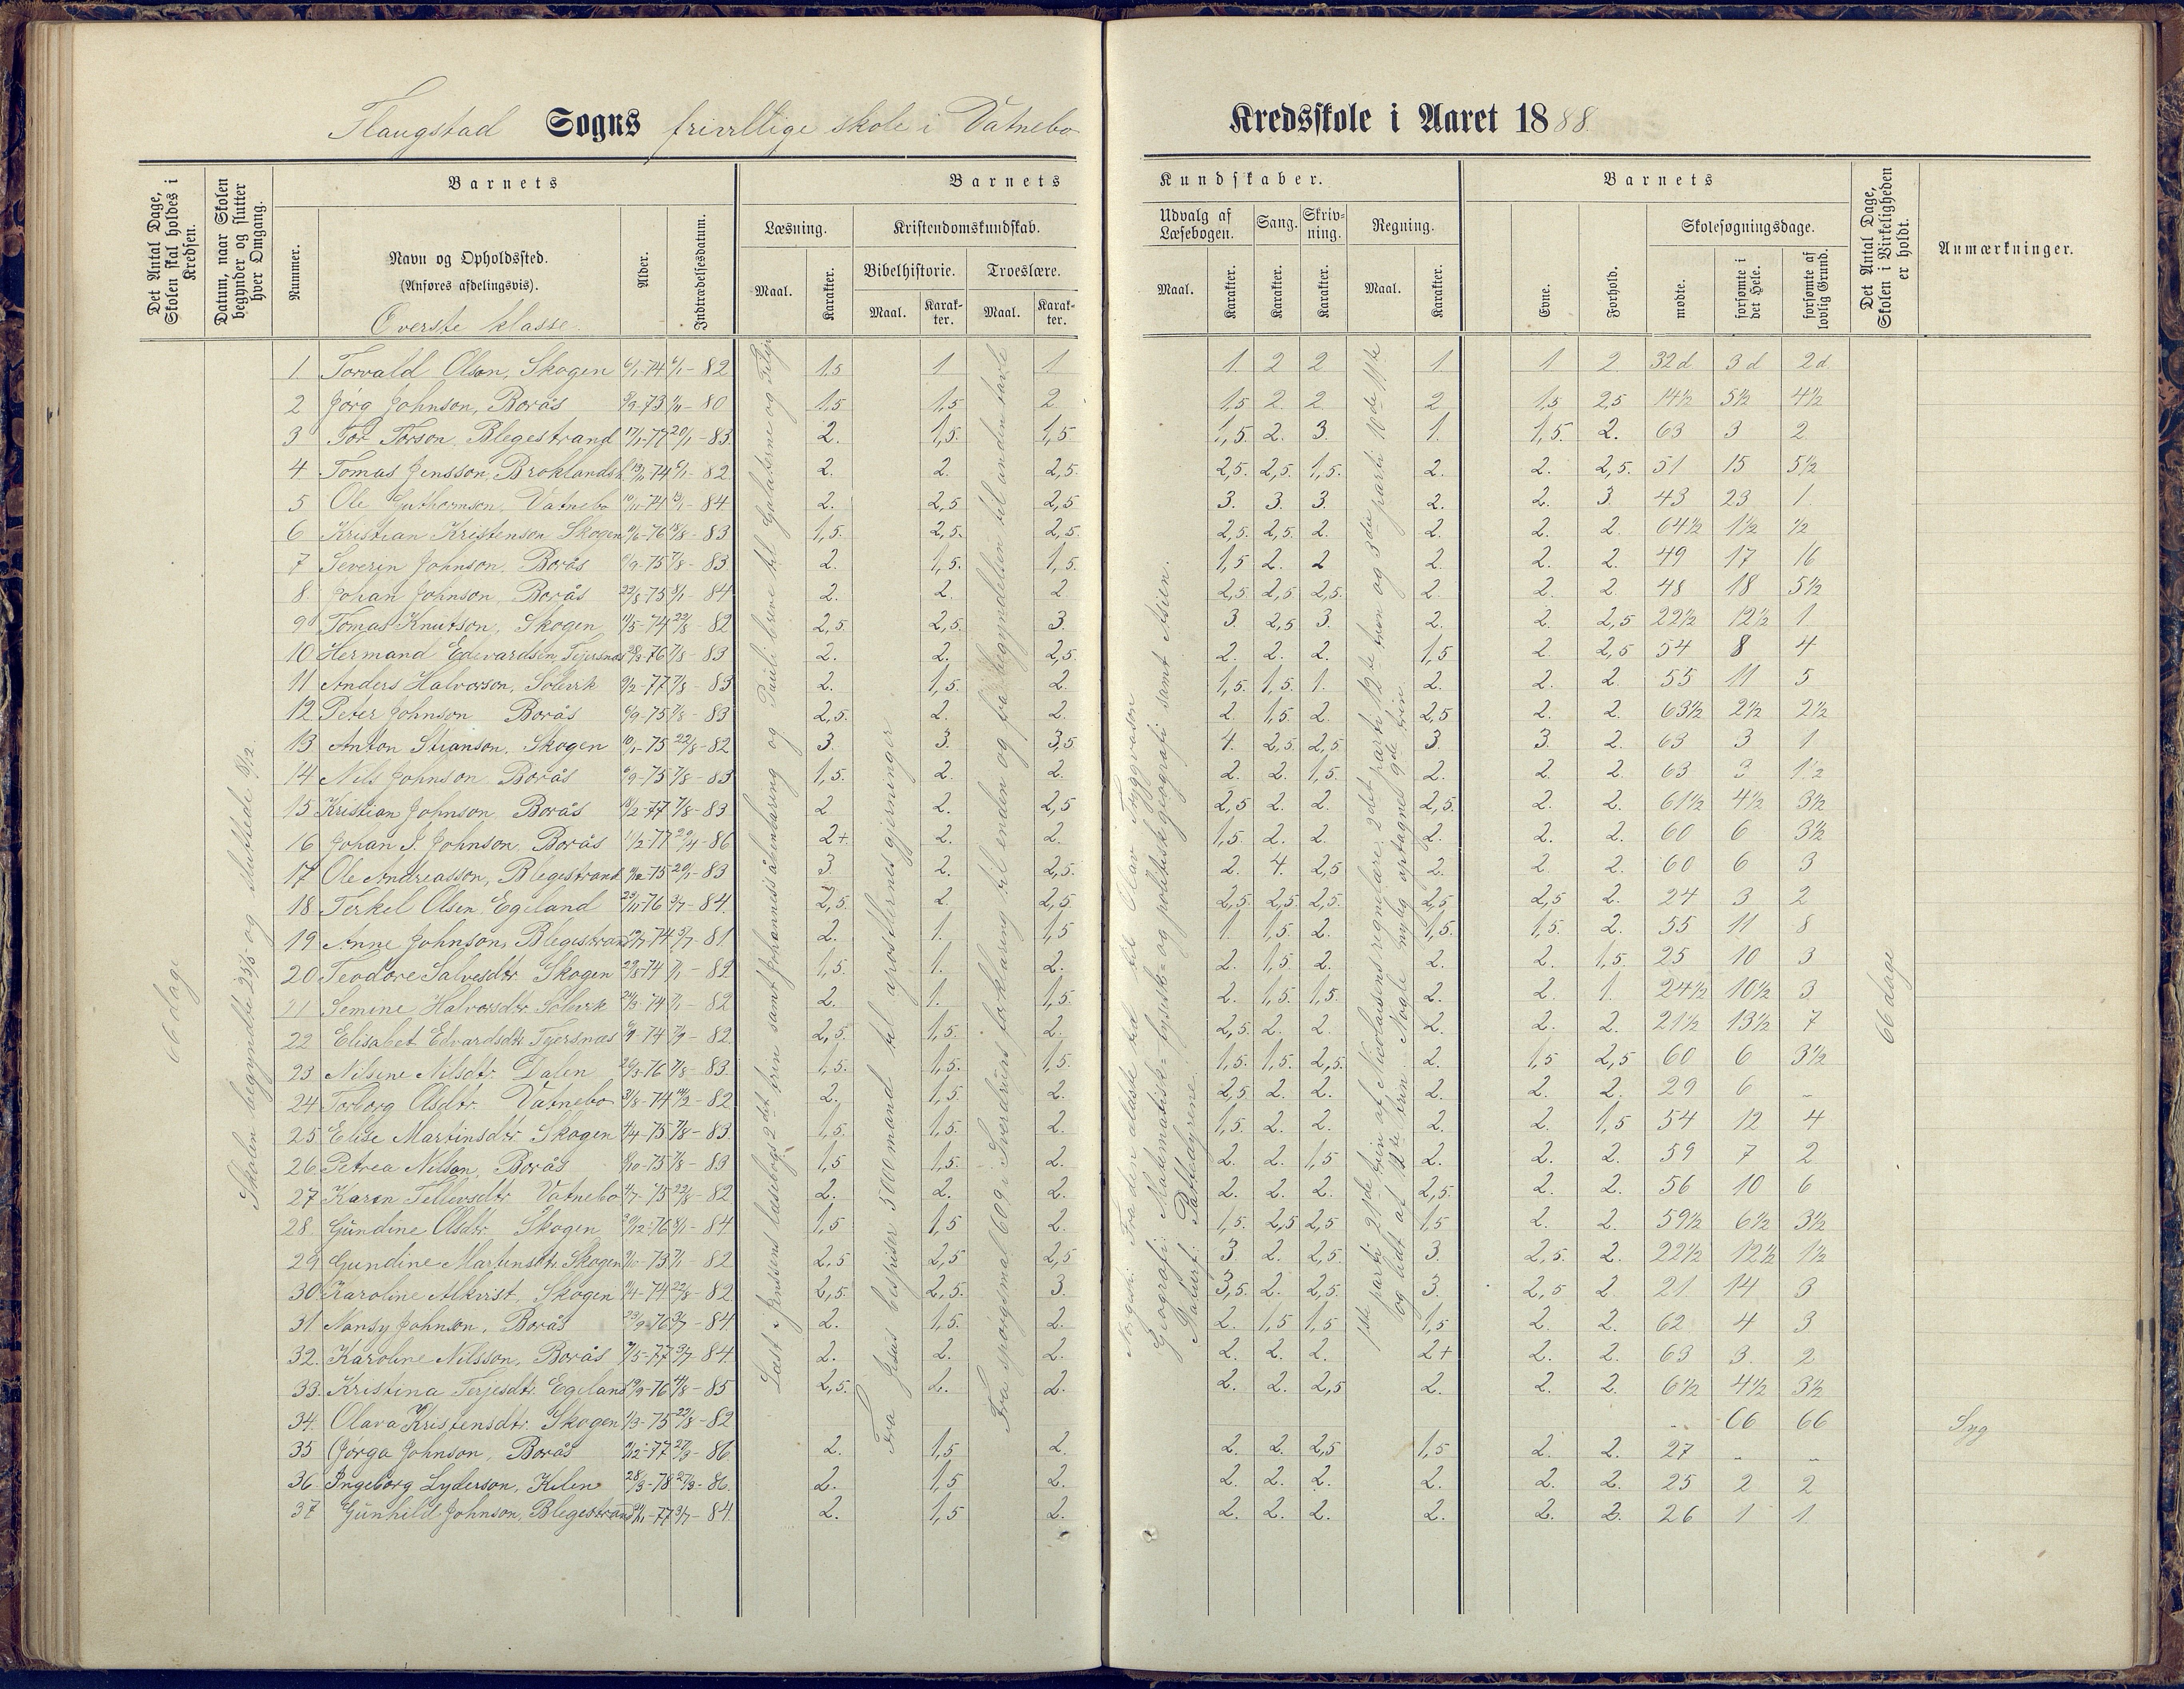 Flaugstad Sogns frivillige skole i Vatnebo Kredsskole i Aaret 1888.
Det Antal Dage, Skolen skal holdes i Kredsen.
Datum, naar Skolen begynder og slutter hver Omgang.
Barnets
Nummer.
Navn og Opholdssted.
(Anføres afdelingsvis).
Øverste klasse.
Alder.
Indtrædelsesdatum.
Barnets Kundskaber.
Læsning.
Maal.
Karakter.
Kristendomskundskab.
Bibelhistorie.
Maal.
Karakter.
Troeslære.
Maal.
Karakter.
Udvalg af Læsebogen.
Maal.
Karakter.
Sang.
Karakter.
Skrivning.
Karakter.
Regning.
Maal.
Karakter.
Barnets
Evne.
Forhold.
Skolesøgningsdage.
mødte.
forsømte i det Hele.
forsømte af lovlig Grund.
Det Antal Dage, Skolen i Virkeligheden er holdt.
Anmærkninger.
66 dage
Skolen begyndte 23/5 og sluttede 8/12.
Læst i Jenssens læsebogs 2det trin samt Johannes's åbenbaring og Pauli breve til Galaterne og Filip
Fra Jesus bespiser 5000 mand til apostlernes gjerninger
Fra spørgsmål 60 i Sverdrups forklaring til enden og fra begyndelsen til anden tavle
Norgesh: Fra den ældste tid til Olav Trygvesøn
Geografi: Matematisk- fysisk- og politiskgeografi samt Asien.
Naturf: Pattedyrene.
1ste parti 21de trin af Nicolaisens regnelære; 2det parti 12te trin og 3die parti 10de 11te
og ladt af 12te trin. Nogle nylig optagne 9de trin.
66 dage
1. Torvald Olson, Skogen 6/1-74 6/1-82 1.5 1 1 1. 2 2 1 1 2. 32d 3d 2d
2 Jørg Johnson, Borås 9/9-73 1/11-80 1.5 1,5 2. 1,5 2. 2. 2 1,5 2,5 14½ 5½ 4½
3 Tor Torson, Blegestrand 17/1-77 20/1-83. 2. 1,5. 1,5 1,5. 2. 3. 1. 1,5. 2. 63 3 2
4. Tomas Jensson, Broklandsh. 13/11-74 6/1-82. 2. 2. 2,5. 2,5. 2,5. 1,5. 2. 2. 2,5. 51 15 5½
5 Ole Guthormson, Vatnebo 10/11-74 3/1-84. 2. 2,5 2,5 3. 3. 3. 2. 2. 3. 43 23 1.
6 Kristian Kristenson Skogen 10/6-76 18/8-83 1,5. 2,5. 2,5. 2,5. 2,5. 2. 2. 2. 2. 64½ 1½ ½
7 Severin Johnson, Borås 6/9-75 7/8-83 2. 1,5. 1,5. 1,5 2. 2 2. 2. 2. 49 17 16
8. Johan Johnson, Borås 22/8-75 3/1-84 2. 2. 2 2,5 2,5 2,5. 2. 2. 2. 48 18 5½
9 Tomas Knutson, Skogen 11/5-74 22/8-82 2,5. 2,5. 3. 3. 2,5 3. 2. 2. 2,5 22½ 12½ 1
10 Hermand Edevardsen, Tjersnæs 28/3-76 7/8-83 2. 2. 2,5. 2. 2. 2. 1,5 2. 2,5 54 8 4
11 Anders Halvorson, Solvik 9/2-77 7/8-83 2. 1,5. 2. 1,5. 1,5. 1. 2. 2. 2. 55 11 5
12 Peter Johnson Borås 6/9-75 7/8-83 2,5. 2. 2. 2. 1,5. 2. 2,5 2. 2. 63½ 2½ 2½
13 Anton Stianson, Skogen 10/1-75 22/8-82 3. 3. 3,5 4. 2,5. 2,5 3. 3. 2. 63 3 1
14 Nils Johnson Borås 6/9-75 7/8-83 1,5. 2. 2. 2. 2. 1,5. 2. 2. 2. 63 3 1½
15 Kristian Johnson, Borås 18/2-77 7/8-83 2 2. 2,5 2,5 2. 2. 2,5. 2. 2. 61½ 4½ 3½
16 Johan J. Johnson, Borås 11/2-77 29/4-86 2+ 2. 2. 1,5. 2. 2. 2. 2. 2. 60 6 3½
17 Ole Andreasson, Blegestrand 11/12-75 20/1-83 3. 2. 2,5. 2. 4. 2,5 2. 2 2. 60 6 3
18. Terkel Olsen, Egeland 23/11-76 9/7-84. 2,5. 2. 2,5. 2,5. 2,5. 2,5. 2,5 2,5 2. 24 3 2
19 Anne Johnson, Blegestrand 19/7-74 5/7-81 2. 1. 1,5 1. 1,5. 2. 1,5. 1,5. 2. 55 11 8
20 Teodore Salvesdtr. Skogen 22/5-74 7/1-82 1,5. 1. 2. 2. 1,5. 2. 2. 2. 1,5. 25 10 3
21 Semine Halvorsdtr. Solvik 24/3-74 7/1-82 2. 1. 1,5. 2. 1,5. 1,5. 2. 2. 1. 24½ 10½ 3.
22 Elisabet Edvardsdtr. Tjersnæs 6/9-74 7/9-82 2,5. 1,5. 2. 2,5. 2. 2. 2. 2. 2. 21½ 13½ 7
23 Nilsine Nilsdtr. Dalen 26/3-76 7/8-83. 1,5. 1,5. 1,5. 1,5. 1,5. 2,5. 2. 1,5 2,5 60 6 3½
24 Torborg Olsdtr. Vatnebo 31/8-74 14/2-82 2. 1,5. 2. 2,5 2. 2. 2. 2. 2. 29 6 „
25 Elise Martinsdtr. Skogen 4/4-75 7/8-83. 1,5. 1,5. 2. 1,5. 2. 2. 2. 2. 1,5 54 12 4
26 Petrea Nilson, Borås 8/10-75 7/8-83 1,5 1,5. 2. 2. 2. 1,5 2. 2. 2. 59 7 2
27 Karen Tellevsdtr. Vatnebo 4/7-75 22/8-82 2. 2. 2. 2. 2. 2. 2,5. 2. 2. 56 10 6
28. Gundine Olsdtr. Skogen 30/12-76 3/1-84 1,5 1,5 2. 1,5. 2,5 2,5 1,5 2. 2. 59½ 6½ 3½
29 Gundine Martinsdtr. Skogen 7/10-73 7/1-82 2,5 2,5 2,5 3 2. 2,5. 3. 2,5. 2. 22½ 12½ 1½
30 Karoline Alkvist, Skogen 11/4-74 22/8-82 2,5. 2,5. 3. 3,5. 2. 2,5. 3. 2,5 2. 21 14 3
31 Nansy Johnson, Borås 23/9-76 3/7-84 2. 1,5. 2. 2. 1,5 1,5. 1,5 2. 2. 62 4 3
32. Karoline Nilsson, Borås 7/5-77 3/7-84 2. 2. 2. 2. 2. 2. 2+ 2. 2. 63 3. 2
33. Kristina Terjesdtr. Egeland 19/9-76 4/8-85 2,5. 2. 2. 2. 2. 2,5 2. 2. 2. 6½ 4½ 3½
34. Olava Kristensdtr. Skogen 1/3-75 22/8-82 „ 66 66 Syg
35 Jørga Johnson, Borås 11/12-77 27/9-86 2. 1,5 2. 2. 2. 2,5 1,5 2. 2. 27 „ „
36 Ingeborg Lyderson, Kilen 28/3-78 27/9-86. 2. 1,5 2. 2. 2. 2. 2. 2. 2. 25 2 2
37 Gunhild Johnson, Blegestrand 22/1-77 3/7-84. 2. 1,5 2. 2. 2. 2. 2. 2. 2. 26 1 1